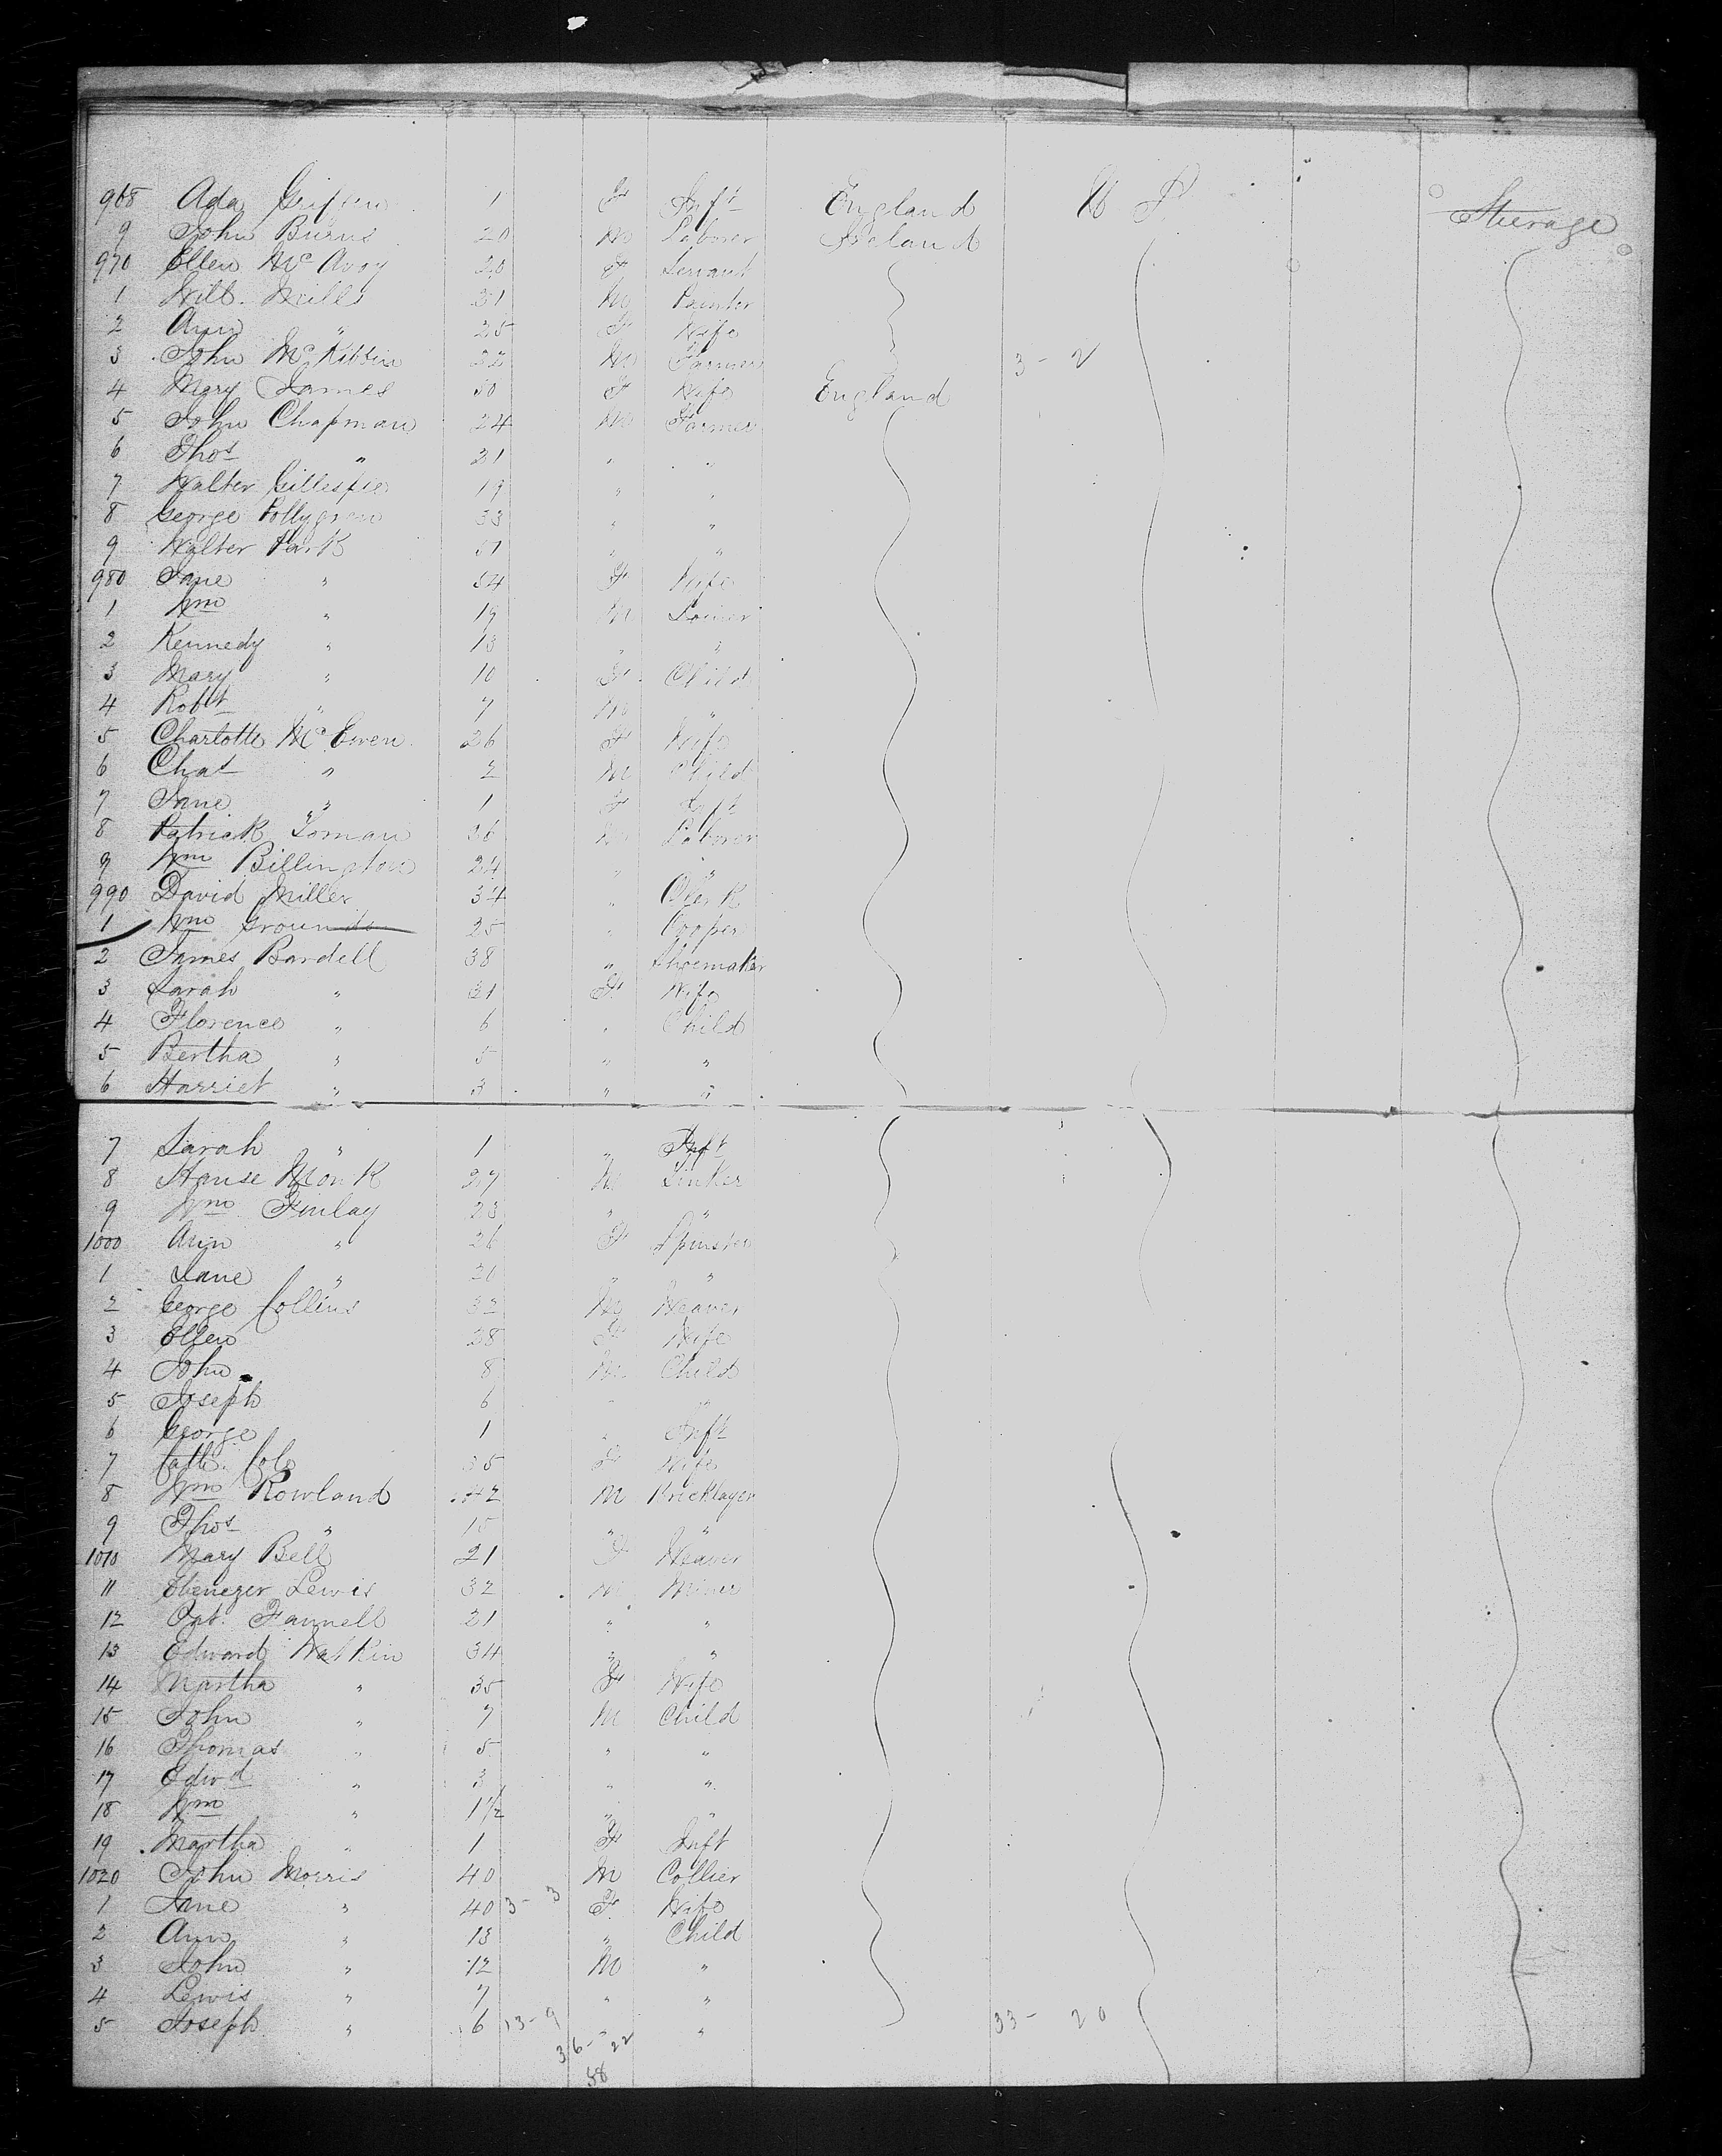 968 Ada Griffin 1 F Inft England U S Steerage
9 John Burns 20 M Laborer Ireland
970 Ellen McAvoy 20 F Servant
1 Will. Mills 31 M Painter
2 Ann " 25 F Wife
3 John McKibbin 22 M Farmer 3 - 2
4 Mary James 50 F Wife England
5 John Chapman 24 M Farmer
6 Thos " 21 " "
7 Walter Gillespie 19 " "
8 George 33 " "
9 Walter Park 51 " "
980 Jane " 54 F Wife
1 Wm " 19 M Joiner
2 Kennedy " 13 " "
3 Mary " 10 F Child
4 Robt " 7 M "
5 Charlotte McEwen 26 F Wife
6 Chas " 2 M Child
7 Jane " 1 F Inft
8 Patrick 36 M Laborer
9 Wm Billington 24 " "
990 David Miller 34 " Clerk
1 Wm Grounds 25 " Cooper
2 James Bardell 38 " Shoemaker
3 Sarah " 31 F Wife
4 Florence " 6 " Child
5 Bertha " 5 " "
6 Harriet " 3 " "
7 Sarah " 1 " Inft
8 Hanse Monk 27 M Tinker
9 Wm Finlay 23 " "
1000 Ann " 26 F Spinster
1 Jane " 20 " "
2 George Collins 32 M Weaver
3 Ellen 28 F Wife
4 John 8 M Child
5 Joseph 6 " "
6 George 1 " Inft
7 Cath. Cole 35 F Wife
8 Wm Rowland 42 M Bricklayer
9 Thos " 15 " "
1010 Mary Bell 21 F Weaver
11 Ebenezer Lewis 32 M Miner
12 Pat. Fannell 21 " "
13 Edward Watkin 34 " "
14 Martha " 35 F Wife
15 John " 7 M Child
16 Thomas " 5 " "
17 Edwd " 3 " "
18 Wm " 1 1/2 " "
19 Martha " 1 F Inft
1020 John Morris 40 M Collier
1 Jane " 40 3 - 3 F Wife
2 Ann " 13 " Child
3 John " 12 M "
4 Lewis " 7 " "
5 Joseph " 6 13 - 9 " " 33 - 20
36 - 22
58